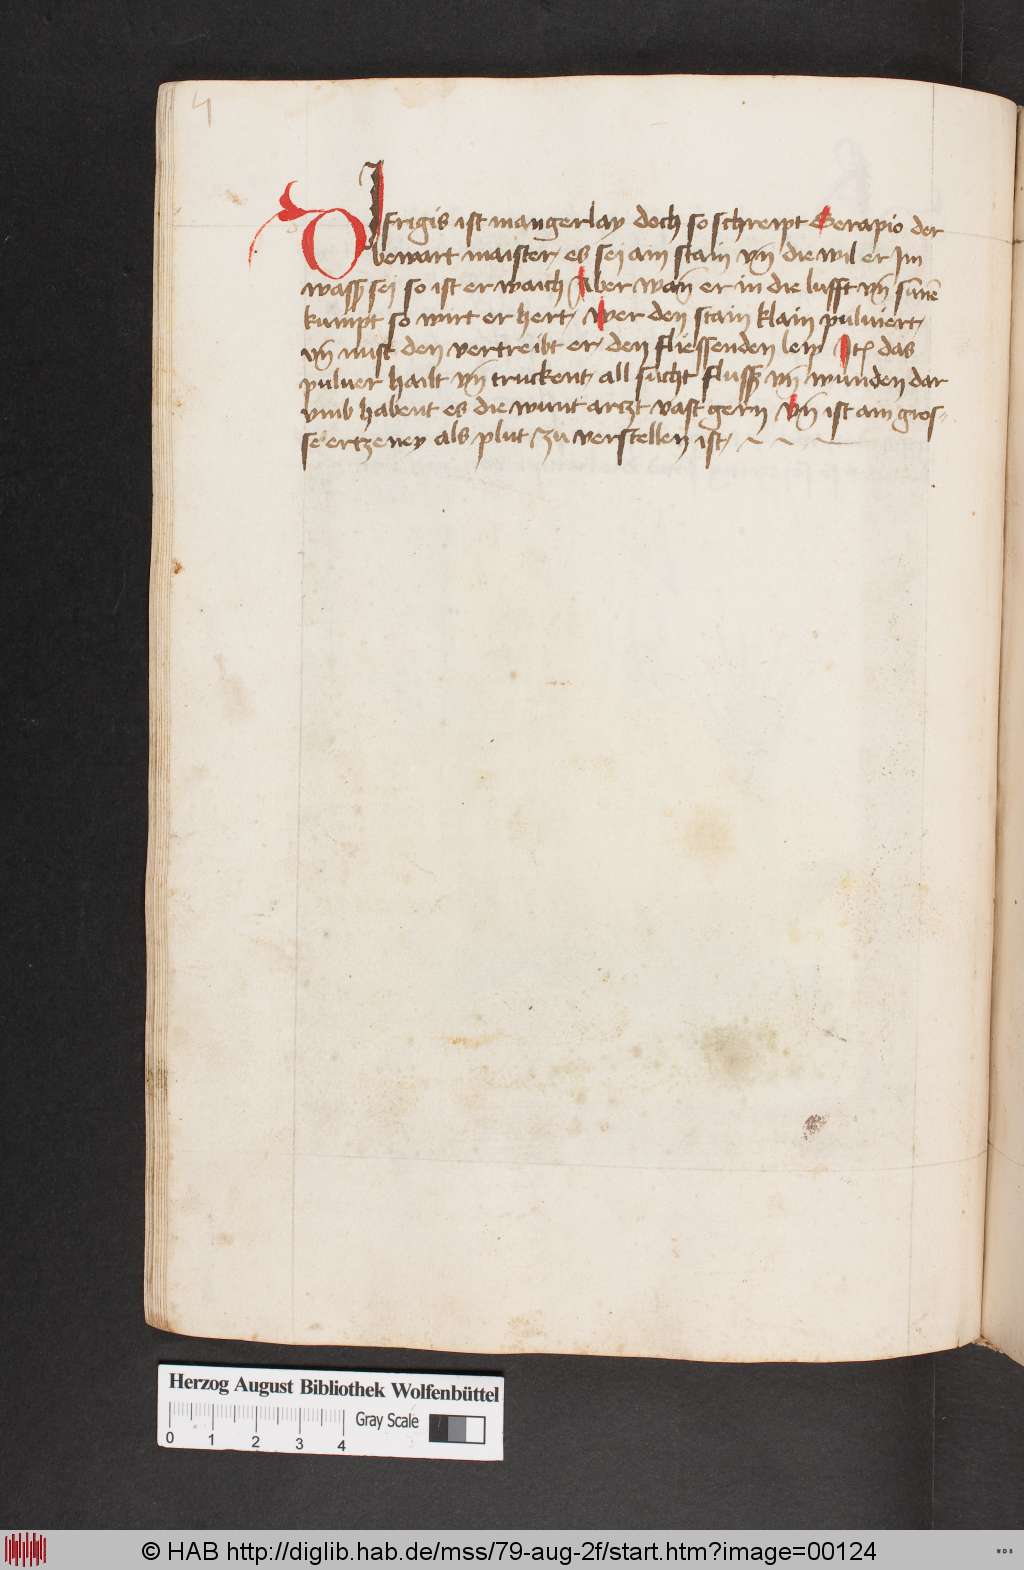 4
DIfrigis ist mangerlay doch so schreipt Serapio der
bewart maister es sei am stain vn̄ die wil er Im
wasser sei so ist er waich Aber wan er in die lufft vn̄ sunē
kumpt so wirt er hert wer den stain klain pulvert
vn̄ nust den vertreibt er den fliessenden leip It das
puluer hailt vn̄ truckent all sucht fluss vn̄ wunden dar
vmb habent es die wunt arczt vast gern vn̄ ist am gros=
se ertzeney als plut zu verstellen ist
Herzog August Bibliothek Wolfenbüttel
Gray Scale
0 1 2 3 4
© HAB http://diglib.hab.de/mss/79-aug-2f/start.htm?image=00124